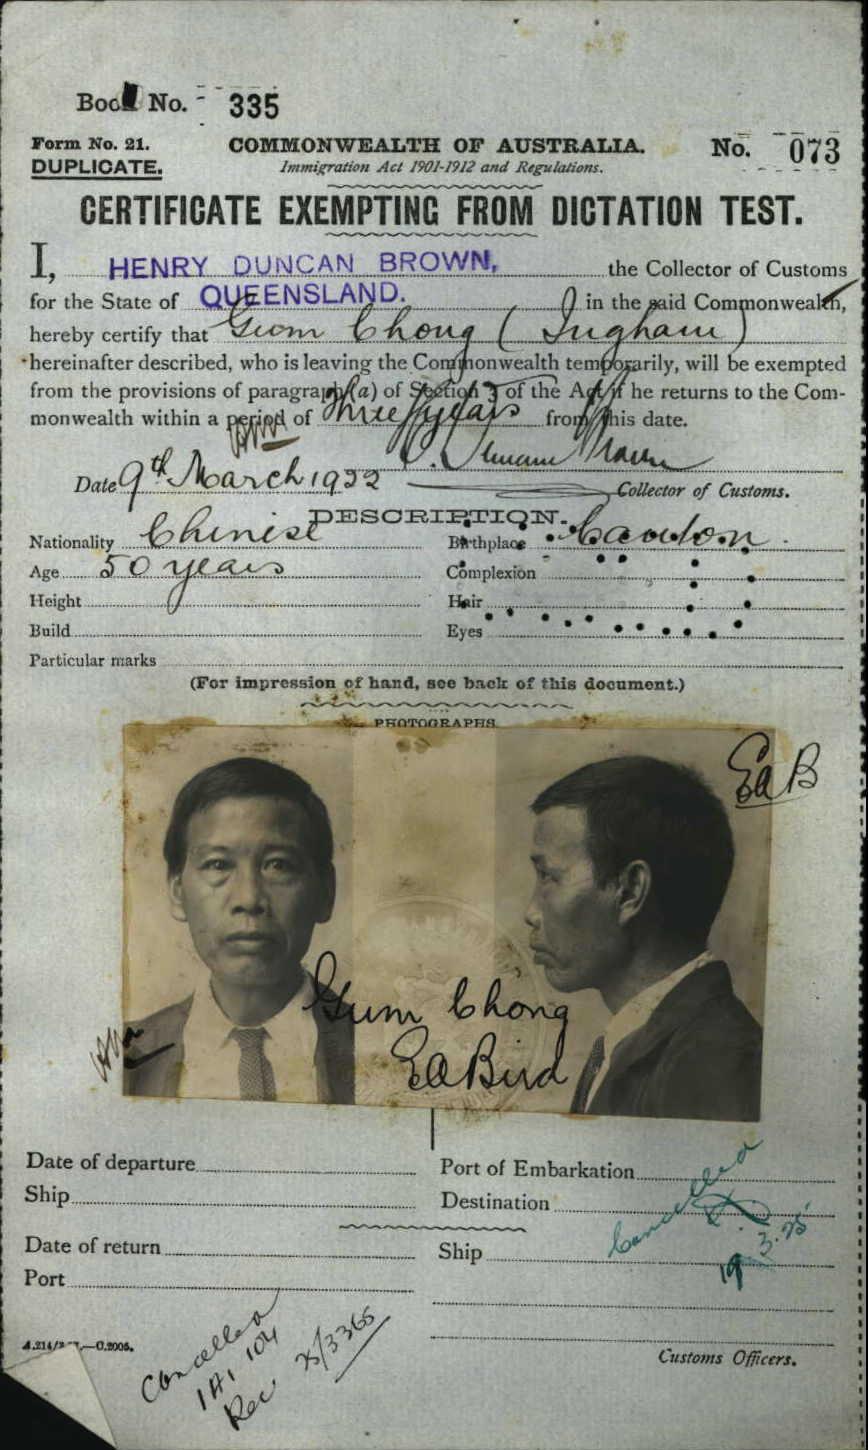 Book No. - 335
Form No. 21.
DUPLICATE.
COMMONWEALTH OF AUSTRALIA.
Immigration Act 1901-1912 and Regulations.
No. 073
CERTIFICATE EXEMPTING FROM DICTATION TEST.
I, HENRY DUNCAN BROWN, the Collector of Customs
for the State of QUEENSLAND. in the said Commonwealth,
hereby certify that Gum Chong (Ingham)
hereinafter described, who is leaving the Commonwealth temporarily, will be exempted
from the provisions of paragraph (a) of Section 3 of the Act if he returns to the Com-
monwealth within a period of three years from this date.
Date 9th March 1922
Collector of Customs.
DESCRIPTION.
Nationality Chinese Birthplace Canton
Age 50 years Complexion
Height Hair
Build Eyes
Particular marks
(For impression of hand, see back of this document.)
PHOTOGRAPHS.
EaB
Gum Chong
EABird
Date of departure Port of Embarkation
Ship Destination
Cancelled
19.3.25
Date of return Ship
Port
Cancelled
Rec. 25/3365
Customs Officers.